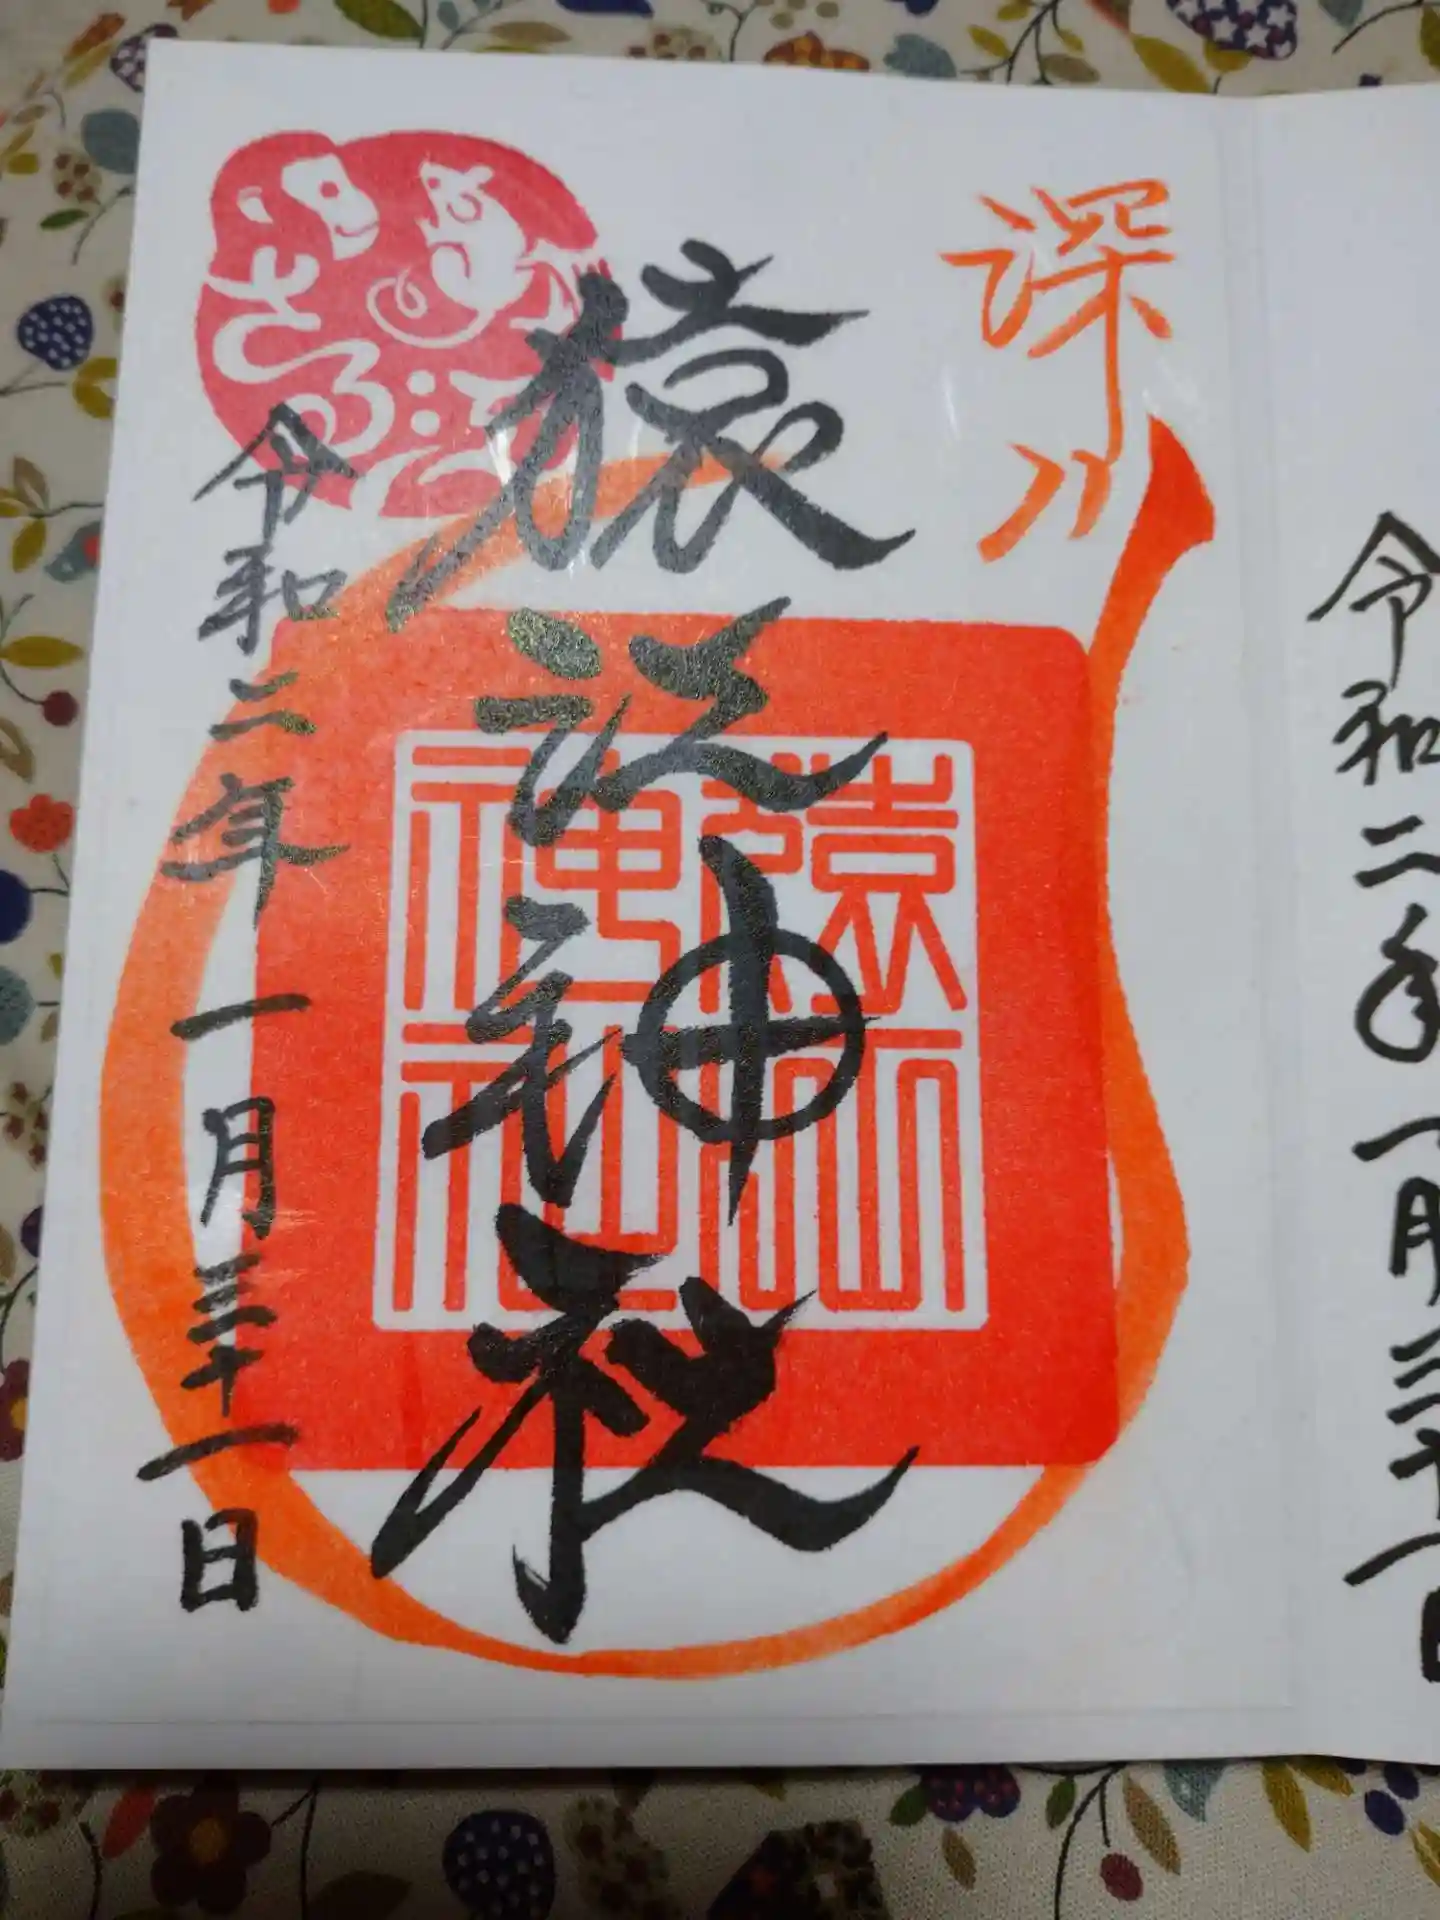 深川
猿江神社
猿江神社
さる江
令和二年一月三十一日
令和二年一月三十一日